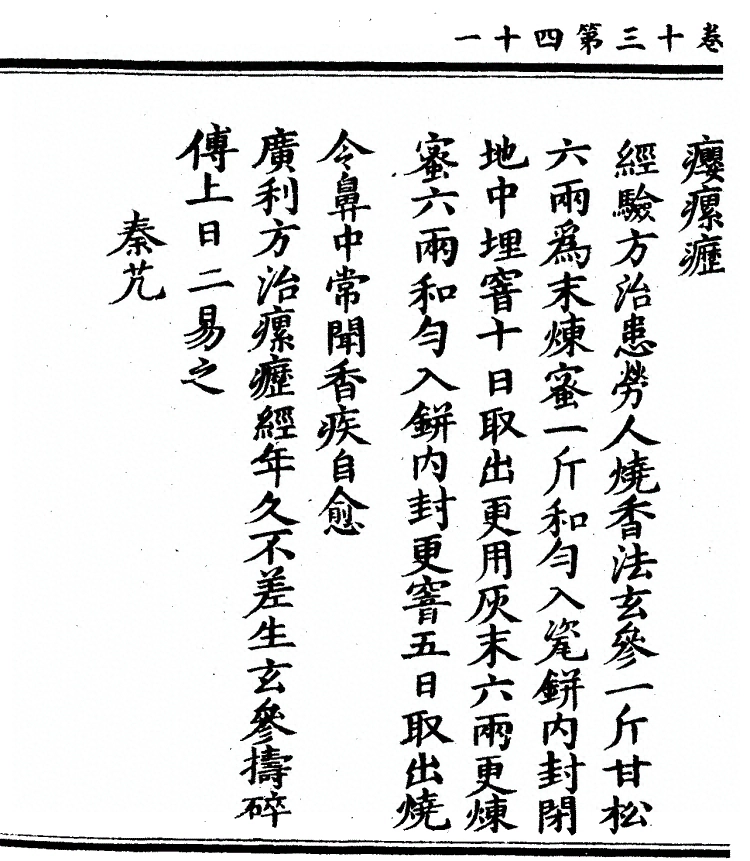 卷十三第四十一
癭瘰癧
經驗方治患勞人燒香法玄參一斤甘松
六兩爲末煉蜜一斤和勻入瓷缾內封閉
地中埋窨十日取出更用灰末六兩更煉
蜜六兩和勻入缾內封更窨五日取出燒
令鼻中常聞香疾自愈
廣利方治瘰癧經年久不差生玄參擣碎
傅上日二易之
秦艽